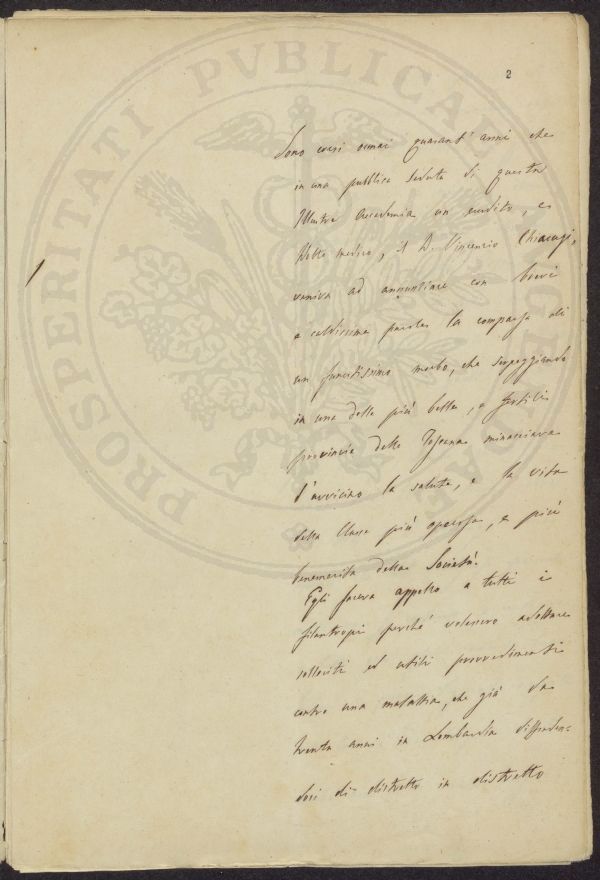 2
Sono corsi ormai quarant' anni che
in una pubblica seduta di questa
Illustre Accademia un erudito, e
dotto medico, il D. Vincenzio Chiarugi,
veniva ad annunziare con brevi
e caldissime parole la comparsa di
un funestissimo morbo, che serpeggiando
in una delle più belle, e fertili
provincie della Toscana minacciava
d'avvicino la salute, e la vita
della Classe più operosa, e più
benemerita della Società.
Egli faceva appello a tutti i
filantropi perché volessero adottare
solleciti ed utili provvedimenti
contro una malattia, che già da
trenta anni in Lombardia diffonden=
dosi di distretto in distretto
PROSPERITATI PVBLICAE AVGENDAE